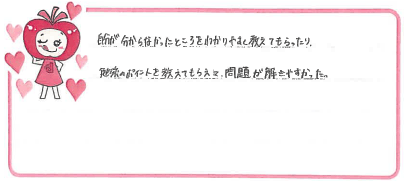 自分が分からなかったところをわかりやすく教えてもらったり、
地域のポイントを教えてもらえて、問題が解きやすかった。